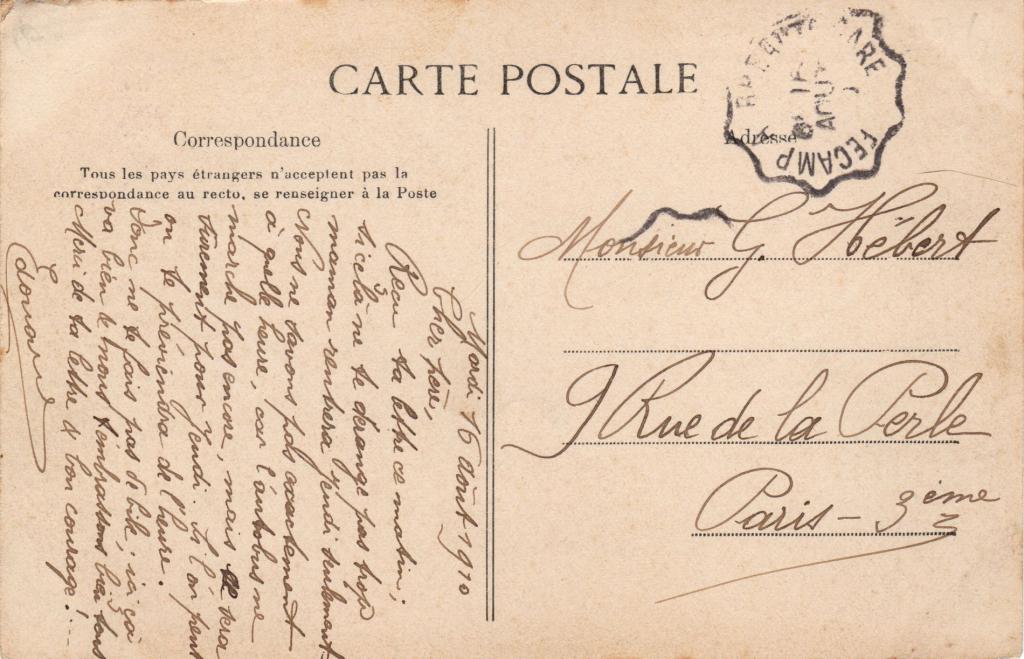 CARTE POSTALE
Correspondance
Tous les pays étrangers n'acceptent pas la
correspondance au recto, se renseigner à la Poste
Adresse
FECAMP
AOUT
Mardi 16 août 1910
Cher père,
Reçu ta lettre ce matin;
si cela ne te dérange pas trop
maman rentrera Jeudi seulement
Nous ne savons pas exactement
à quelle heure, car l'autobus ne
marche pas encore, mais ce sera
sûrement pour Jeudi. Si l'on peut
on te préviendra de l'heure.
Donc ne te fais pas de bile, ici ça
va bien & nous t'embrassons bien tous
Merci de ta lettre & bon courage!
Edouard
Monsieur G. Hébert
9 Rue de la Perle
Paris - 3ème